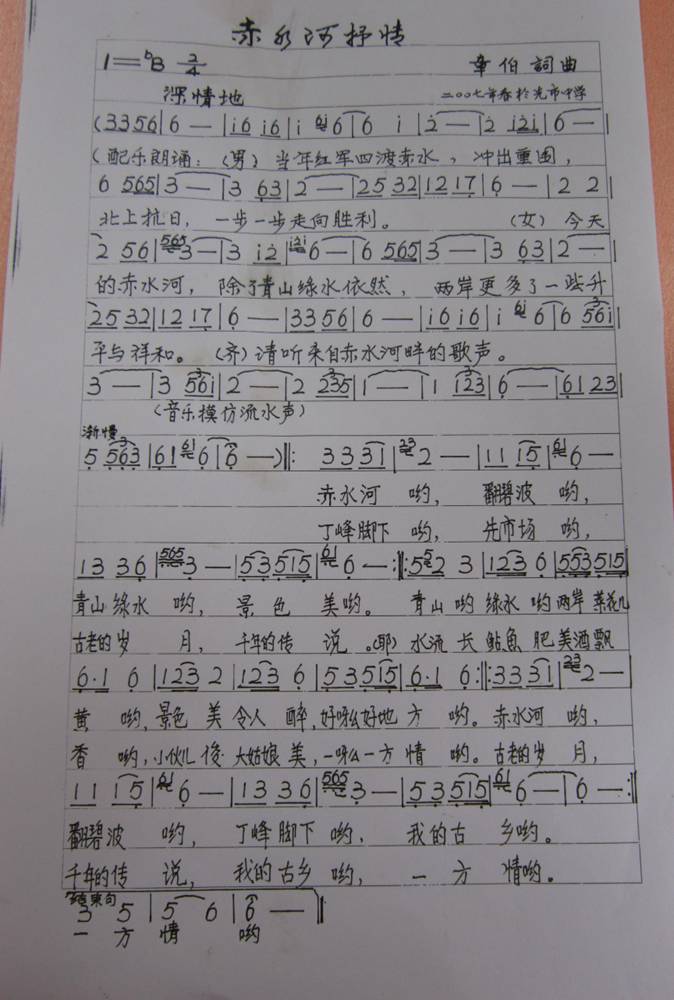 赤水河抒情
1=ᵇB 2/4
章伯 詞曲
深情地
二〇〇七年春於先市中学
(3356|6 —|i6 i6|i 6|6 i|2 —|2 i2i|6 —|
(配乐朗诵：(男) 当年红军四渡赤水，冲出重围，
6 565|3 —|3 63|2 —|25 32|12 17|6 —|2 2|
北上抗日，一步一步走向胜利。 (女) 今天
2 56|3 —|3 i2|6 —|6 565|3 —|3 63|2 —|
的赤水河，除了青山绿水依然，两岸更多了一些升
2532|12 17|6 —|3356|6 —|i6 i6|i 6|6 56i|
平与祥和。 (齐) 请听来自赤水河畔的歌声。
3 —|3 56i|2 —|2 235|1 —|1 123|6 —|61 23|
(音乐模仿流水声)
渐慢
5 563|61 6|6 —)‖: 33 31|2 —|11 15|6 —|
赤水河 哟， 翻碧波 哟，
丁峰脚下 哟， 先市场 哟，
13 36|3 —|53 515|6 —:‖:5 2 3|123 6|553 515|
青山绿水 哟， 景色 美哟。 青山哟绿水哟两岸菜花儿
古老的岁 月， 千年的传 说。(耶) 水流长鲇魚肥美酒飘
6·1 6|123 2|123 6|53 515|6·1 6:‖:33 31|2 —|
黄 哟，景色美令人 醉，好呀么好地方 哟。赤水河 哟，
香 哟，小伙儿俊大姑娘美，一呀么一方情 哟。古老的岁 月，
11 15|6 —|13 36|3 —|53 515|6 —|6 —:‖
翻碧波 哟， 丁峰脚下 哟， 我的古 乡哟。
千年的传 说， 我的古乡 哟， 一 方 情哟。
结束句
3 5|5 6|6 —‖
一 方 情 哟